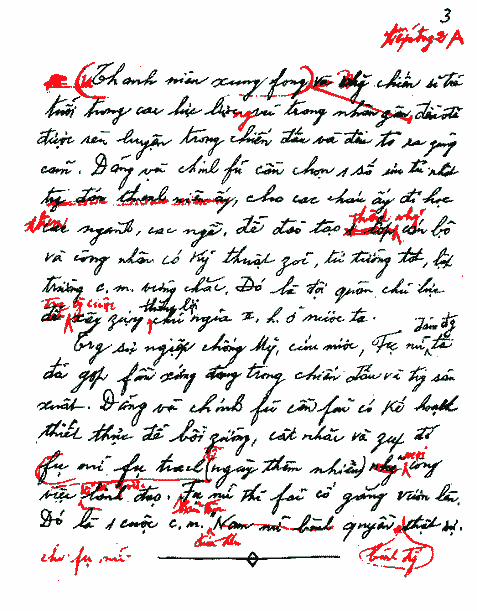 3
tiếp trg 2 A
(Thanh niên xung fong) và những chiến sĩ trẻ
tuổi trong các lực lượng vũ trang nhân zân, đều đã
được rèn luyện trong chiến đấu và đều tỏ ra zũng
cảm. Đảng và chính fủ cần chọn 1 số ưu tú nhất
trg đám thanh niên ấy, cho các cháu ấy đi học
thêm các ngành, các ngề, để đào tạo thành nhg cán bộ
và công nhân có kỹ thuật zỏi, tư tưởng tốt, lập
trường c.m. vững chắc. Đó là đội quân chủ lực
trg cuộc
để xây zựng thắng lợi chủ ngĩa x.h. ở nước ta.
Trg sự ngiệp chống Mỹ, cứu nước, Fụ nữ ta
đã góp fần xứng đáng trong chiến đấu và trg sản
xuất. Đảng và chính fủ cần fải có kế hoạch
thiết thực để bồi zưỡng, cất nhắc và zúp đỡ
fụ nữ fụ trách (ngày thêm nhiều) mọi công
việc lãnh đạo. Fụ nữ thì fải cố gắng vươn lên.
Đó là 1 cuộc c.m. "Nam nữ bình quyền" thật sự.
cho fụ nữ.